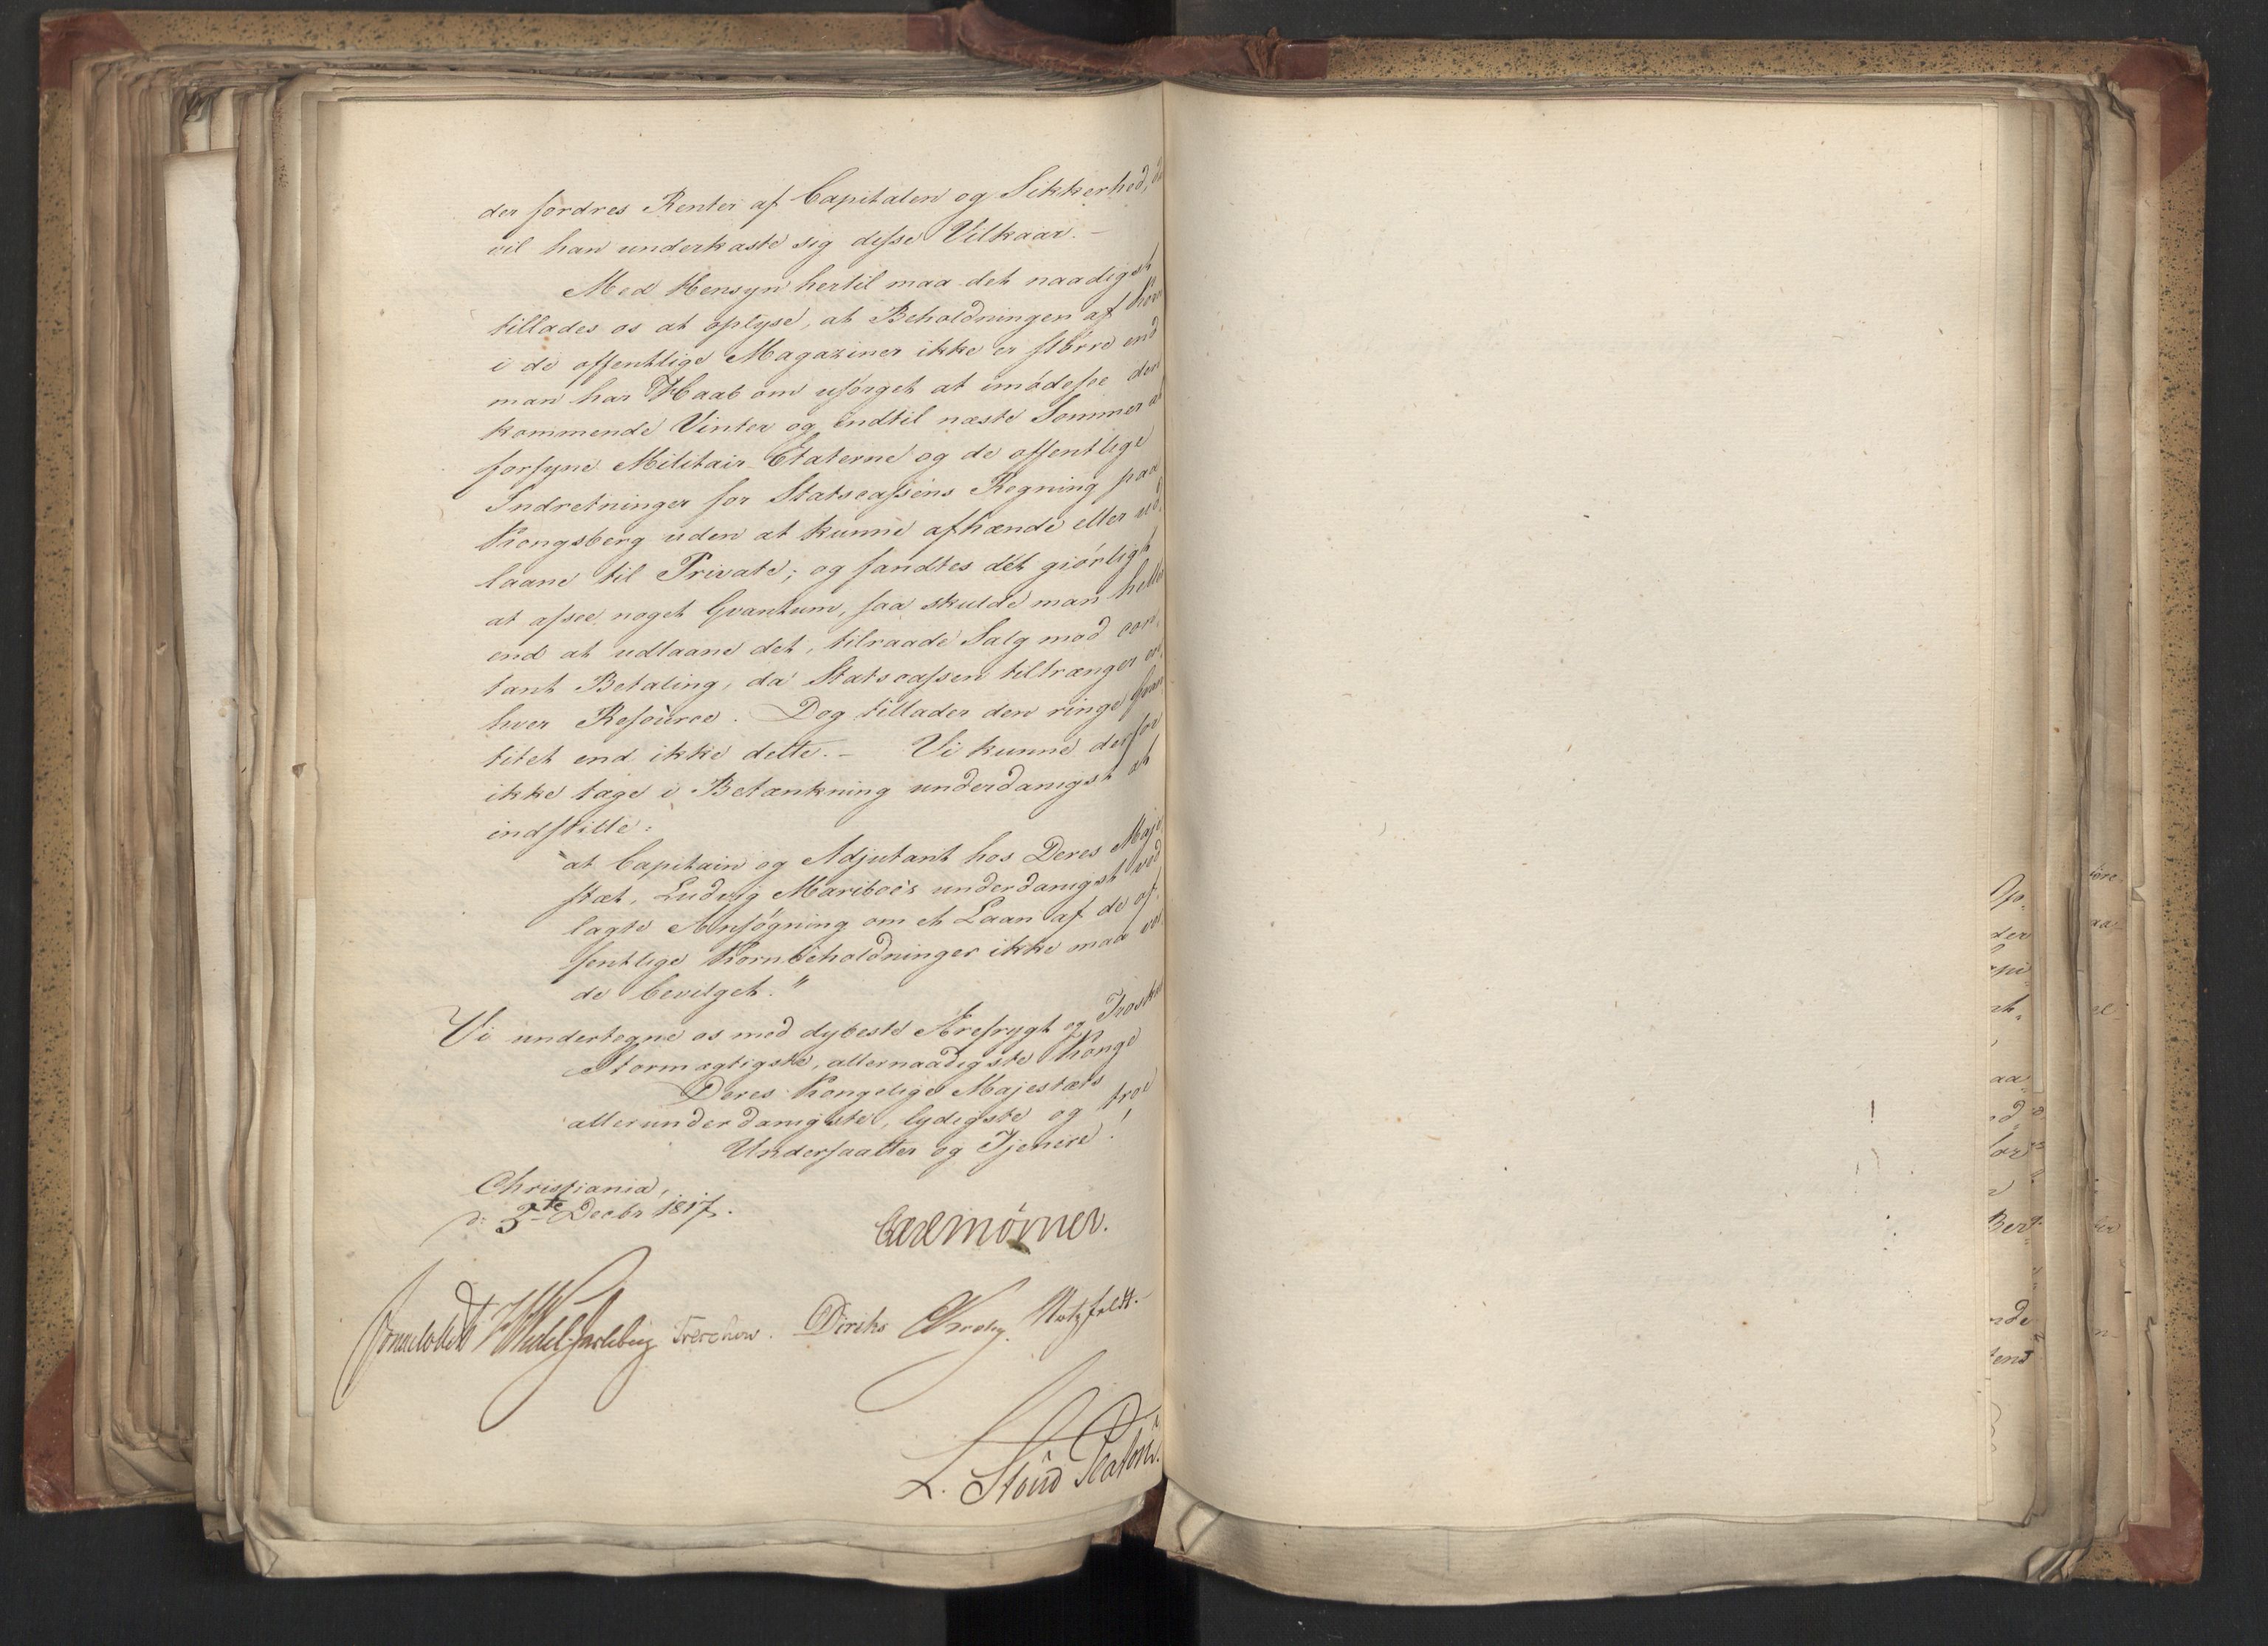 der fordres Renter af Capitalen og Sikkerhed, da
vil han underkaste sig disse Vilkaar. –
Med Hensyn hertil maa det naadigst
tillades os at oplyse, at Beholdningen af Korn
i de offentlige Magaziner ikke er større end
man har Haab om usørget at imødesee den
kommende Vinter og indtil næste Sommer at
forsyne Militair-Etaterne og de offentlige
Indretninger for Statscassens Regning paa
Kongsberg uden at kunne afhænde eller ud-
laane til Private; og fandtes det giørligt
at afsee noget Qvantum, saa skulde man heller
end at udlaane det, tilraade Salg mod con-
tant Betaling, da Statscassen tiltrænger en-
hver Resource. Dog tillader den ringe Qvan-
titet end ikke dette. – Vi kunne derfor
ikke tage i Betænkning underdanigst at
indstille:
"at Capitain og Adjutant hos Deres Maje-
stæt, Ludvig Mariboe's underdanigst ved-
lagte Ansøgning om et Laan af de of-
fentlige Kornbeholdninger ikke maa vor-
de bevilget."
Vi undertegne os med dybeste Ærefrygt og Troskab
Stormægtigste, allernaadigste Konge
Deres Kongelige Majestæts
allerunderdanigste, lydigste og troe
Undersaatter og Tjenere!
Christiania,
d: 3te Decbr 1817.
Carl Mörner.
Sommerhielm HWedel-Jarlsberg Treschow. Diriks CKrohg. Motzfeldt.
L. Stoud Platou.